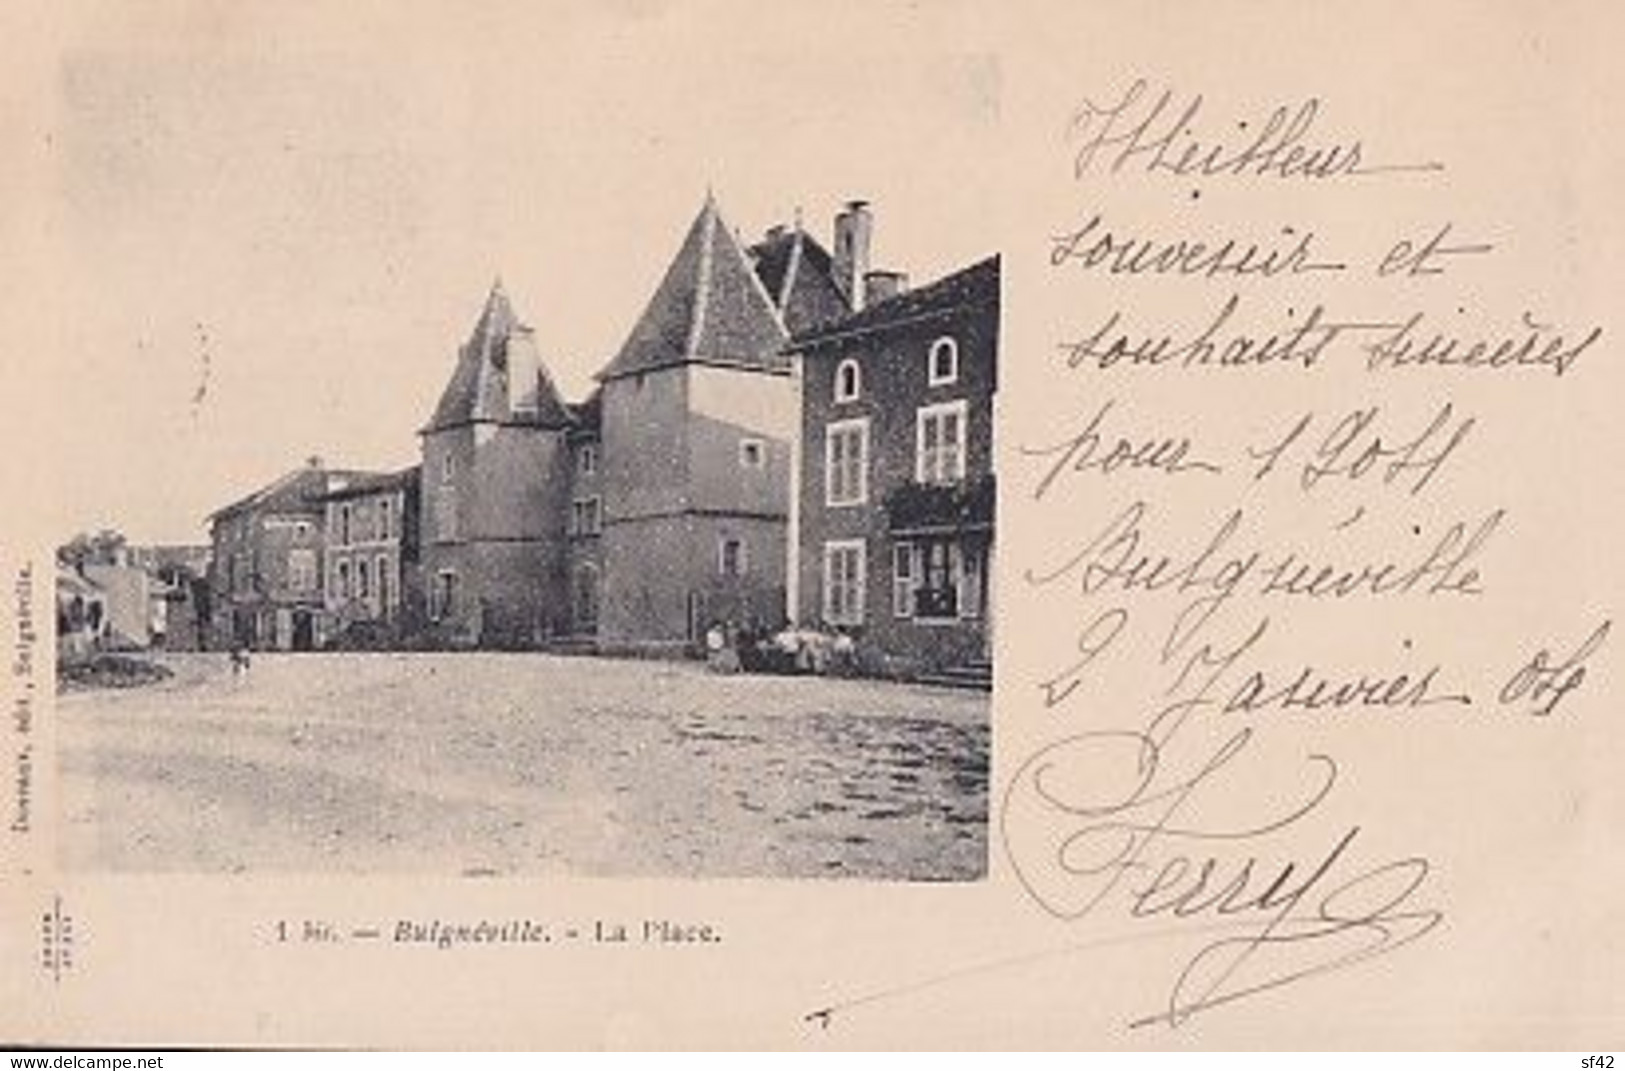 Meilleur
souvenir et
souhaits sincères
pour 1904
Bulgnéville
2 Janvier 04
Ferry
édit, Bulgnéville.
1 bis. — Bulgnéville. - La Place.
www.delcampe.net
sf42